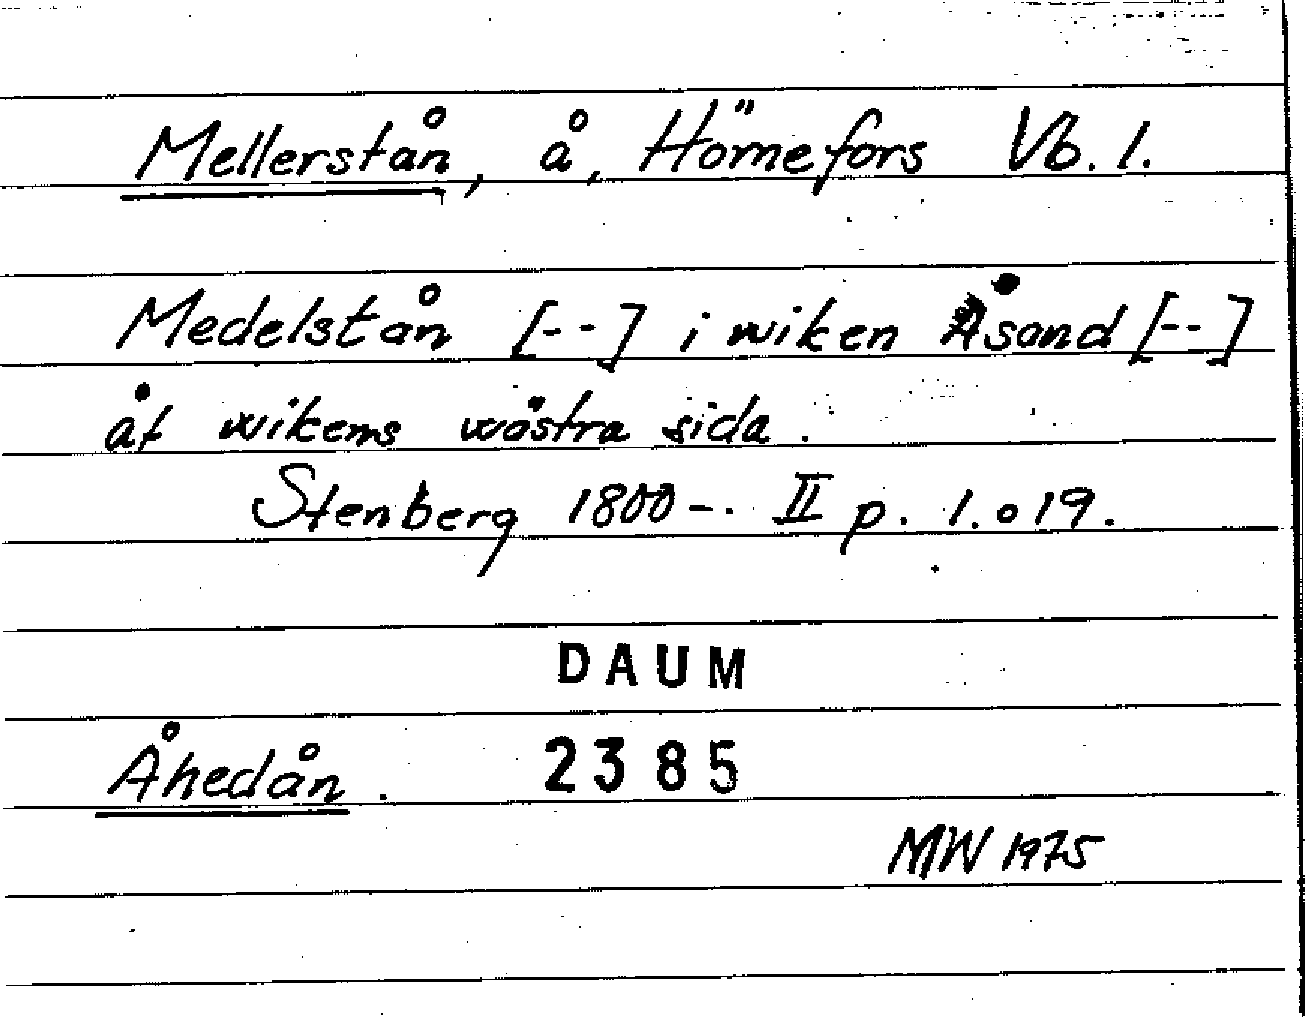 Mellerstån, å, Hörnefors Vb. l.
Medelstån [--] i wiken Åsand [--]
åt wikens wästra sida.
Stenberg 1800-. II p. 1. o 19.
DAUM
Åhedån. 2385
MW 1975